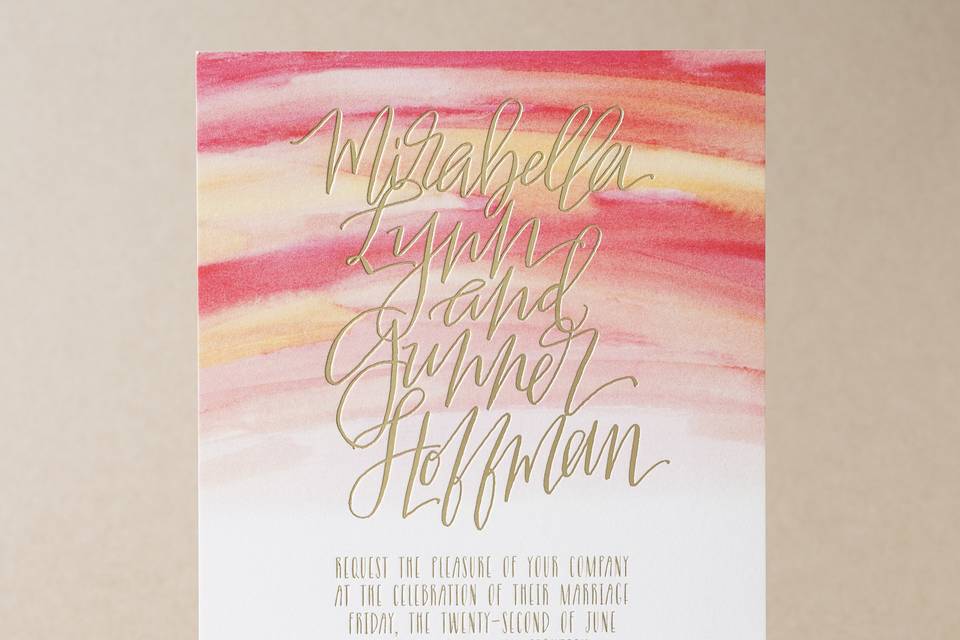 Mirabella
Lynn
and
Gunner
Hoffman
REQUEST THE PLEASURE OF YOUR COMPANY
AT THE CELEBRATION OF THEIR MARRIAGE
FRIDAY, THE TWENTY-SECOND OF JUNE